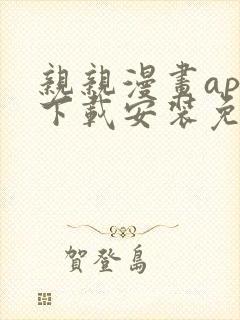 親親漫畫ap
下載安裝免
賀登島